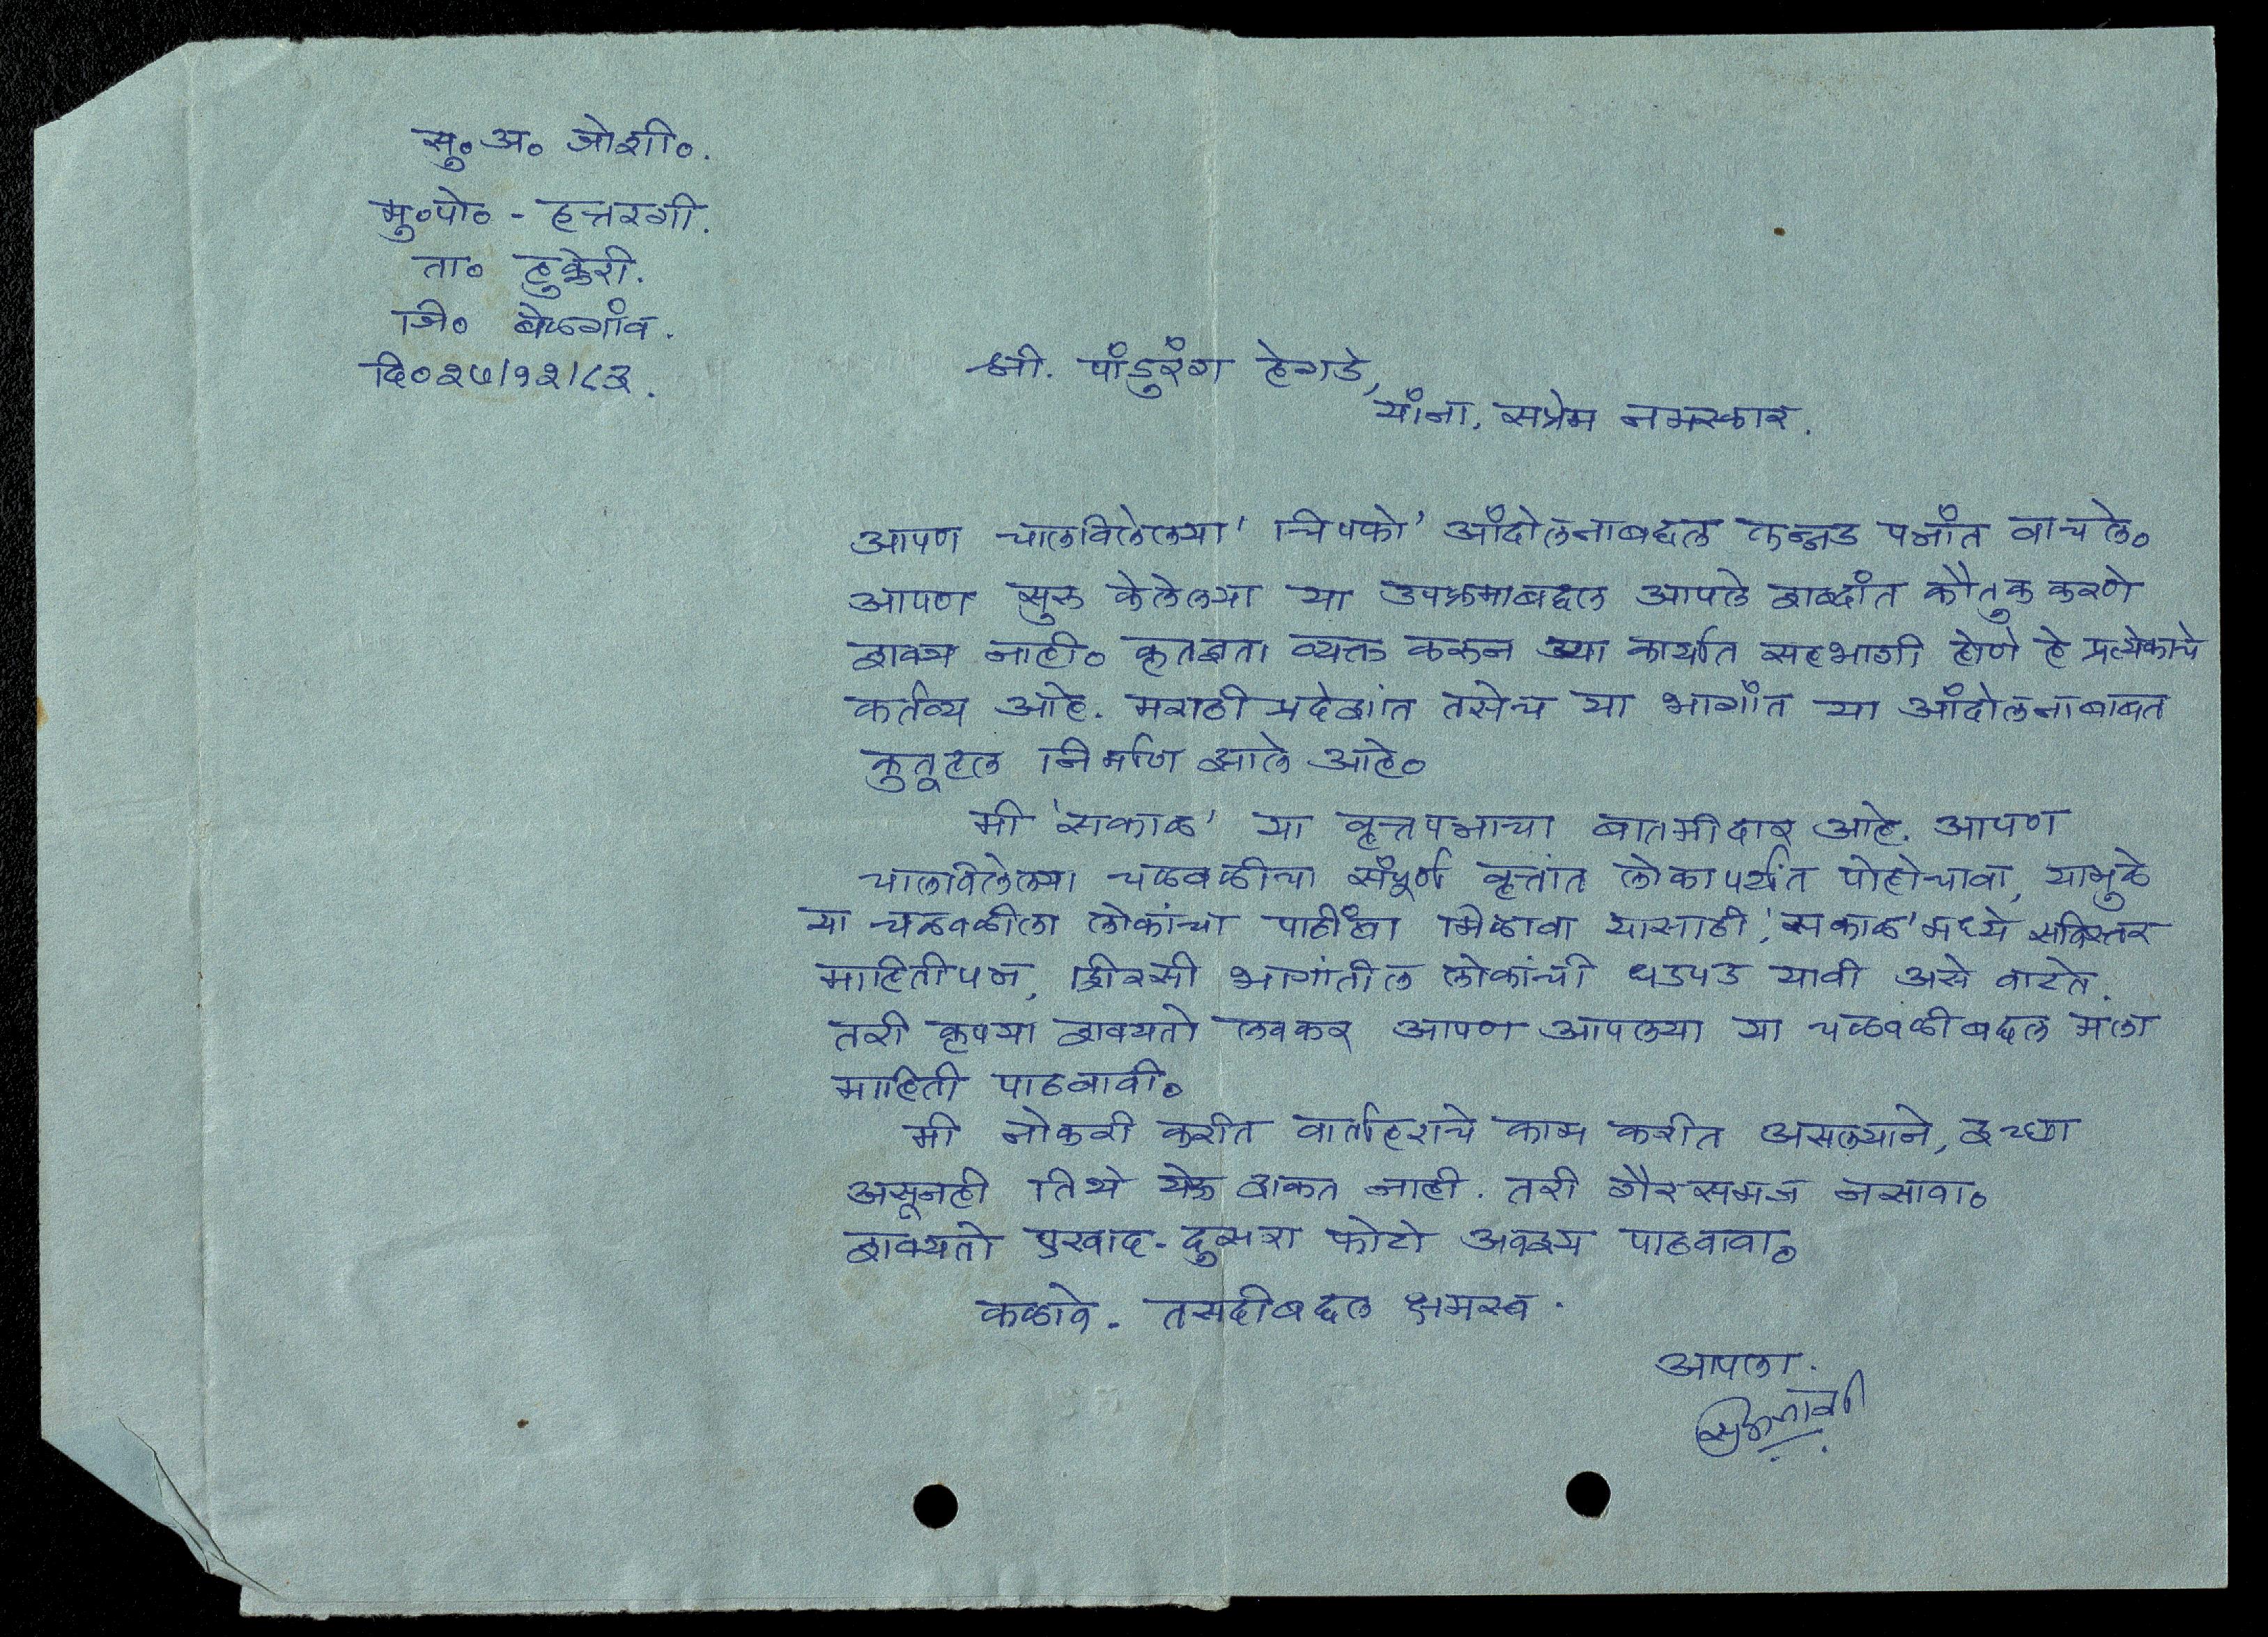 सु॰ अ॰ जोशी॰.
मु॰पो॰ - हत्तरगी.
ता॰ हुक्केरी.
जि॰ बेळगांव.
दि॰ २७/१२/८३.
श्री. पांडुरंग हेगडे,
यांना, सप्रेम नमस्कार.
आपण चालविलेल्या 'चिपको' आंदोलनाबद्दल कन्नड पत्रांत वाचले॰
आपण सुरु केलेल्या या उपक्रमाबद्दल आपले शब्दांत कौतुक करणे
शक्य नाही॰ कृतज्ञता व्यक्त करून या कार्यात सहभागी होणे हे प्रत्येकाचे
कर्तव्य आहे. मराठी प्रदेशांत तसेच या भागांत या आंदोलनाबाबत
कुतूहल निर्माण झाले आहे॰
मी 'सकाळ' या वृत्तपत्राचा बातमीदार आहे. आपण
चालविलेल्या चळवळीचा संपूर्ण वृत्तांत लोकापर्यंत पोहोचावा, यामुळे
या चळवळीला लोकांचा पाठींबा मिळावा यासाठी, 'सकाळ' मध्ये सविस्तर
माहितीपत्र, शिरसी भागांतील लोकांची धडपड यावी असे वाटते.
तरी कृपया शक्यतो लवकर आपण आपल्या या चळवळीबद्दल मला
माहिती पाठवावी॰
मी नोकरी करीत वार्ताहराचे काम करीत असल्याने, इच्छा
असूनही तिथे येऊ शकत नाही. तरी गैरसमज नसावा॰
शक्यतो एखाद-दुसरा फोटो अवश्य पाठवावा॰
कळावे. तसदीबद्दल क्षमस्व.
आपला.